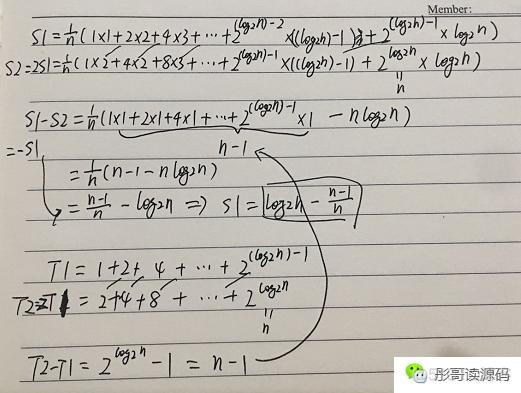 Member:
S1=1/n(1×1+2×2+4×3+⋯+2^((log2n)-2)×((log2n)-1)+2^((log2n)-1)×log2n)
S2=2S1=1/n(1×2+4×2+8×3+⋯+2^((log2n)-1)×((log2n)-1)+2^(log2n)×log2n)
=
n
S1-S2=1/n(1×1+2×1+4×1+⋯+2^((log2n)-1)×1-nlog2n)
=-S1
n-1
=1/n(n-1-nlog2n)
=(n-1)/n-log2n⇒S1=log2n-(n-1)/n
T1=1+2+4+⋯+2^((log2n)-1)
T2=2T1=2+4+8+⋯+2^(log2n)
=
n
T2-T1=2^(log2n)-1=n-1
彤哥读源码